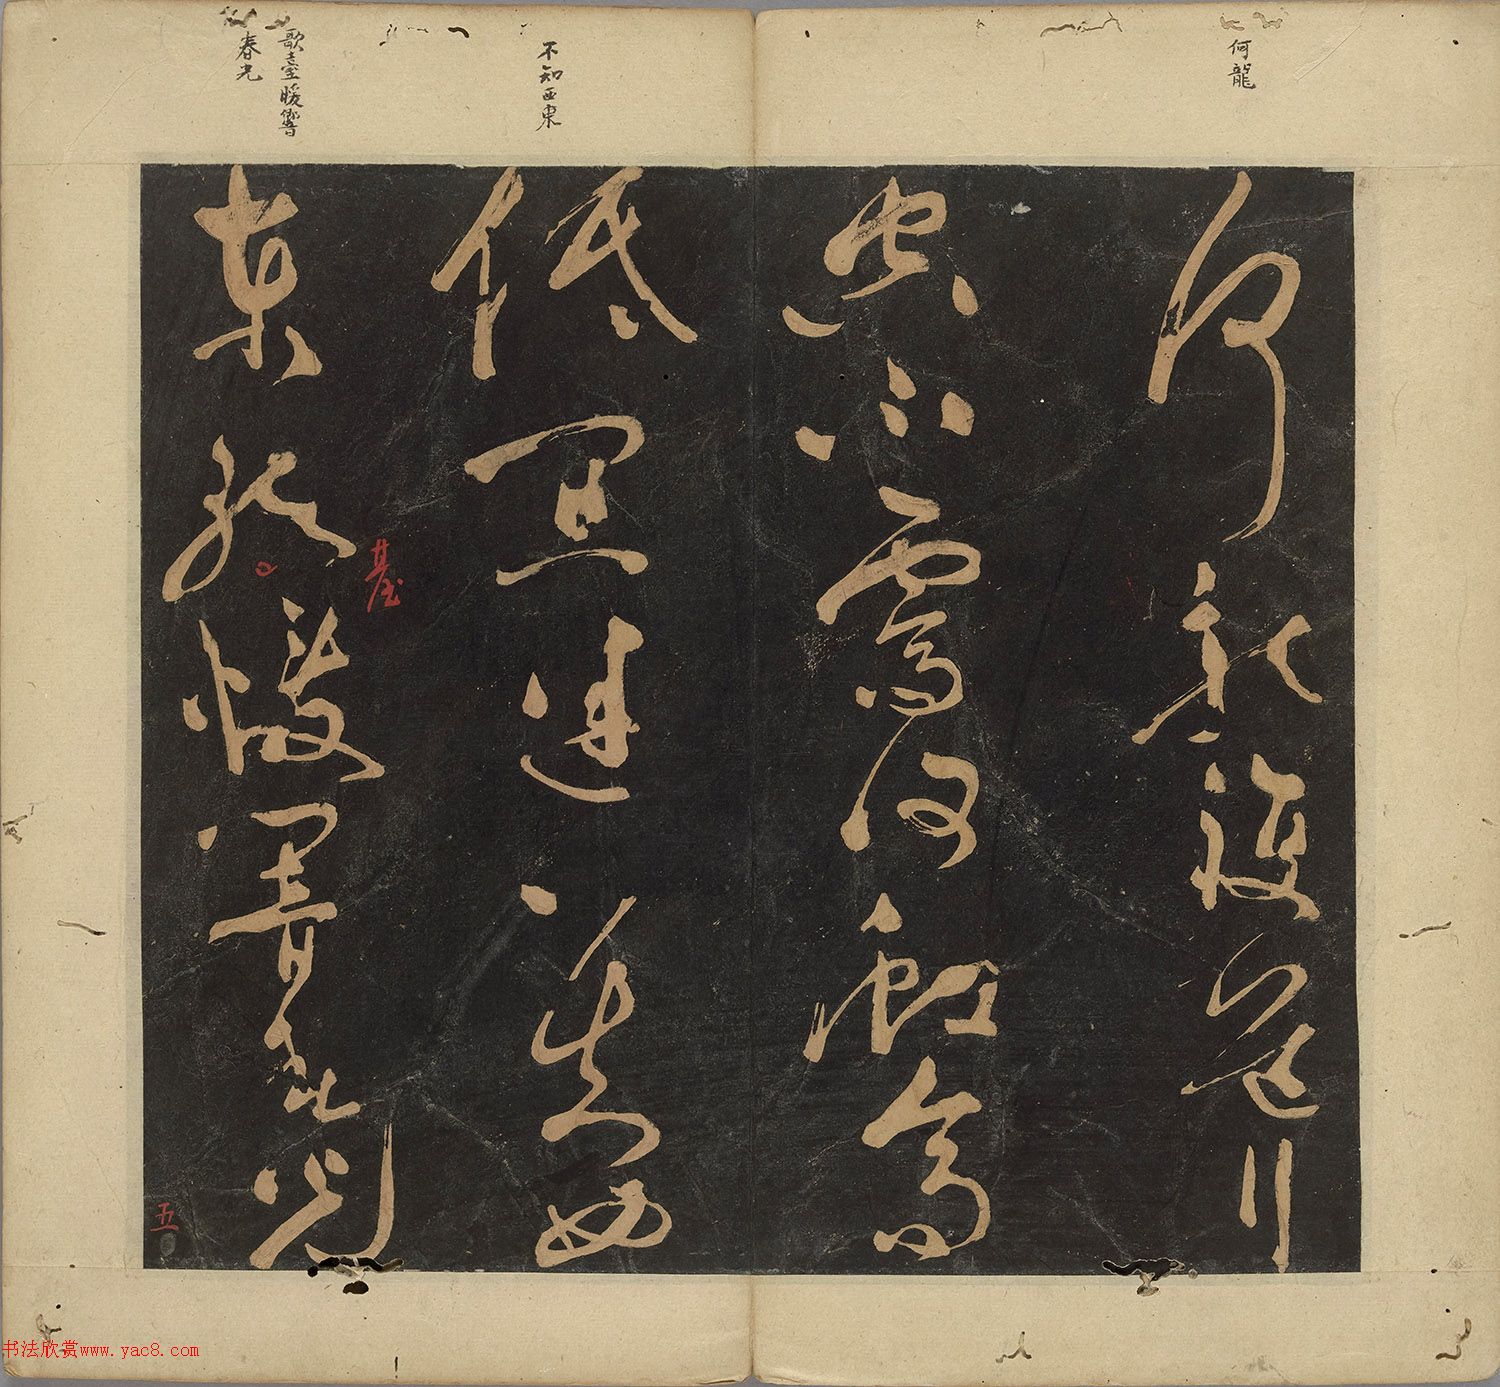 何龍
不知西東
歌臺暖響
春光
何龍複道行
空不霽何虹高
低冥迷不知西
東歌暖響春光
臺
五
书法欣赏www.yac8.com